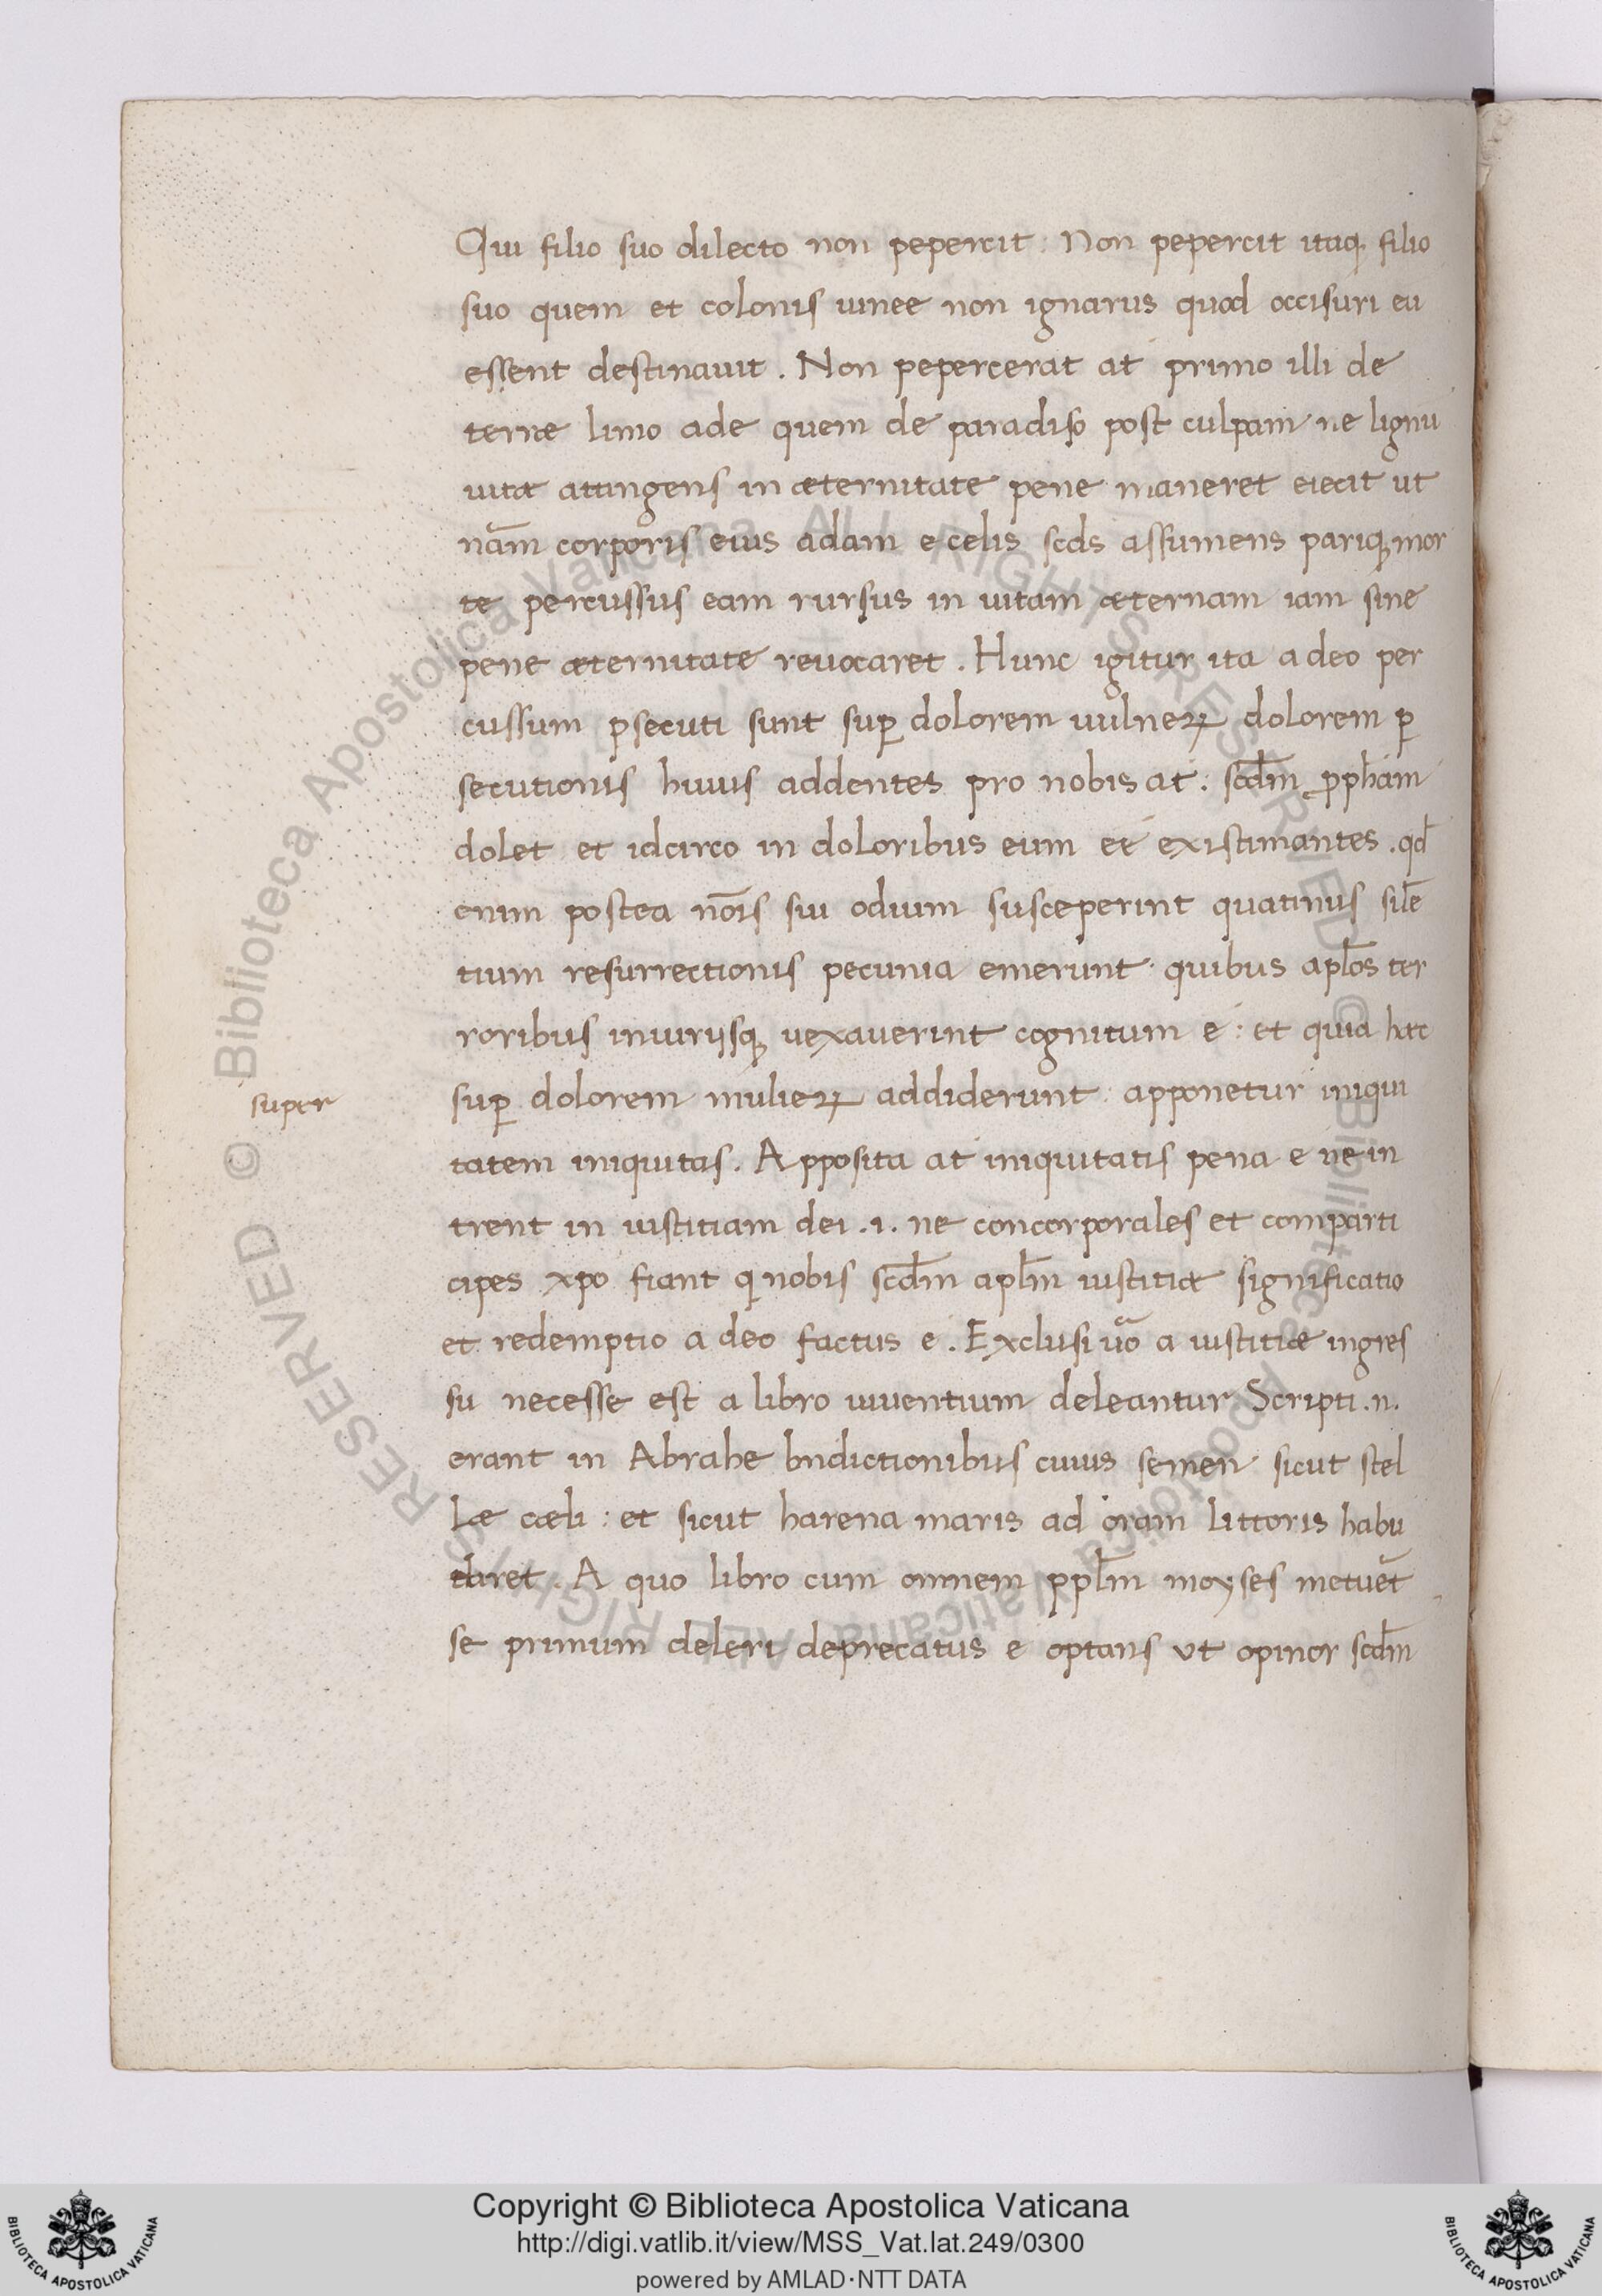 Qui filio suo dilecto non pepercit : Non pepercit itaq; filio
suo quem et colonis uinee non ignarus quod occisuri eu
essent destinauit . Non pepercerat at primo illi de
terræ limo ade quem de paradiso post culpam ne lignu
uitæ attingens in æternitate pene maneret eiecit ut
nãm corporis eius adam e celis scds assumens pariq; mor
te percussus eam rursus in uitam æternam iam sine
pene æternitate reuocaret . Hunc igitur ita a deo per
cussum ꝑsecuti sunt suꝑ dolorem uulneꝝ dolorem ꝑ
secutionis huius addentes pro nobis at : scdm̄ ꝓph̄am
dolet et idcirco in doloribus eum eē existimantes . qd̄
enim postea nōis sui odium susceperint quatinus silē
tium resurrectionis pecunia emerunt quibus apl̄os ter
roribus iniuriisq; uexauerint cognitum ē : et quia hæc
super
suꝑ dolorem mulieꝝ addiderunt apponetur iniqui
tatem iniquitas . Apposita at iniquitatis pena ē ne in
trent in iustitiam dei .i. ne concorporales et comparti
cipes xpo fiant q nobis scdm̄ apl̄m iustitiæ significatio
et redemptio a deo factus ē . Exclusi uō a iustitiæ ingres
su necesse est a libro uiuentium deleantur Scripti .n.
erant in Abrahe bndictionibus cuius semen sicut stel
læ cæli : et sicut harena maris ad oram littoris habu
daret . A quo libro cum omnem ppl̄m moyses metuēt
se primum deleri deprecatus ē optans ut opinor scdm̄
Copyright © Biblioteca Apostolica Vaticana
http://digi.vatlib.it/view/MSS_Vat.lat.249/0300
powered by AMLAD·NTT DATA
BIBLIOTECA APOSTOLICA VATICANA
BIBLIOTECA APOSTOLICA VATICANA